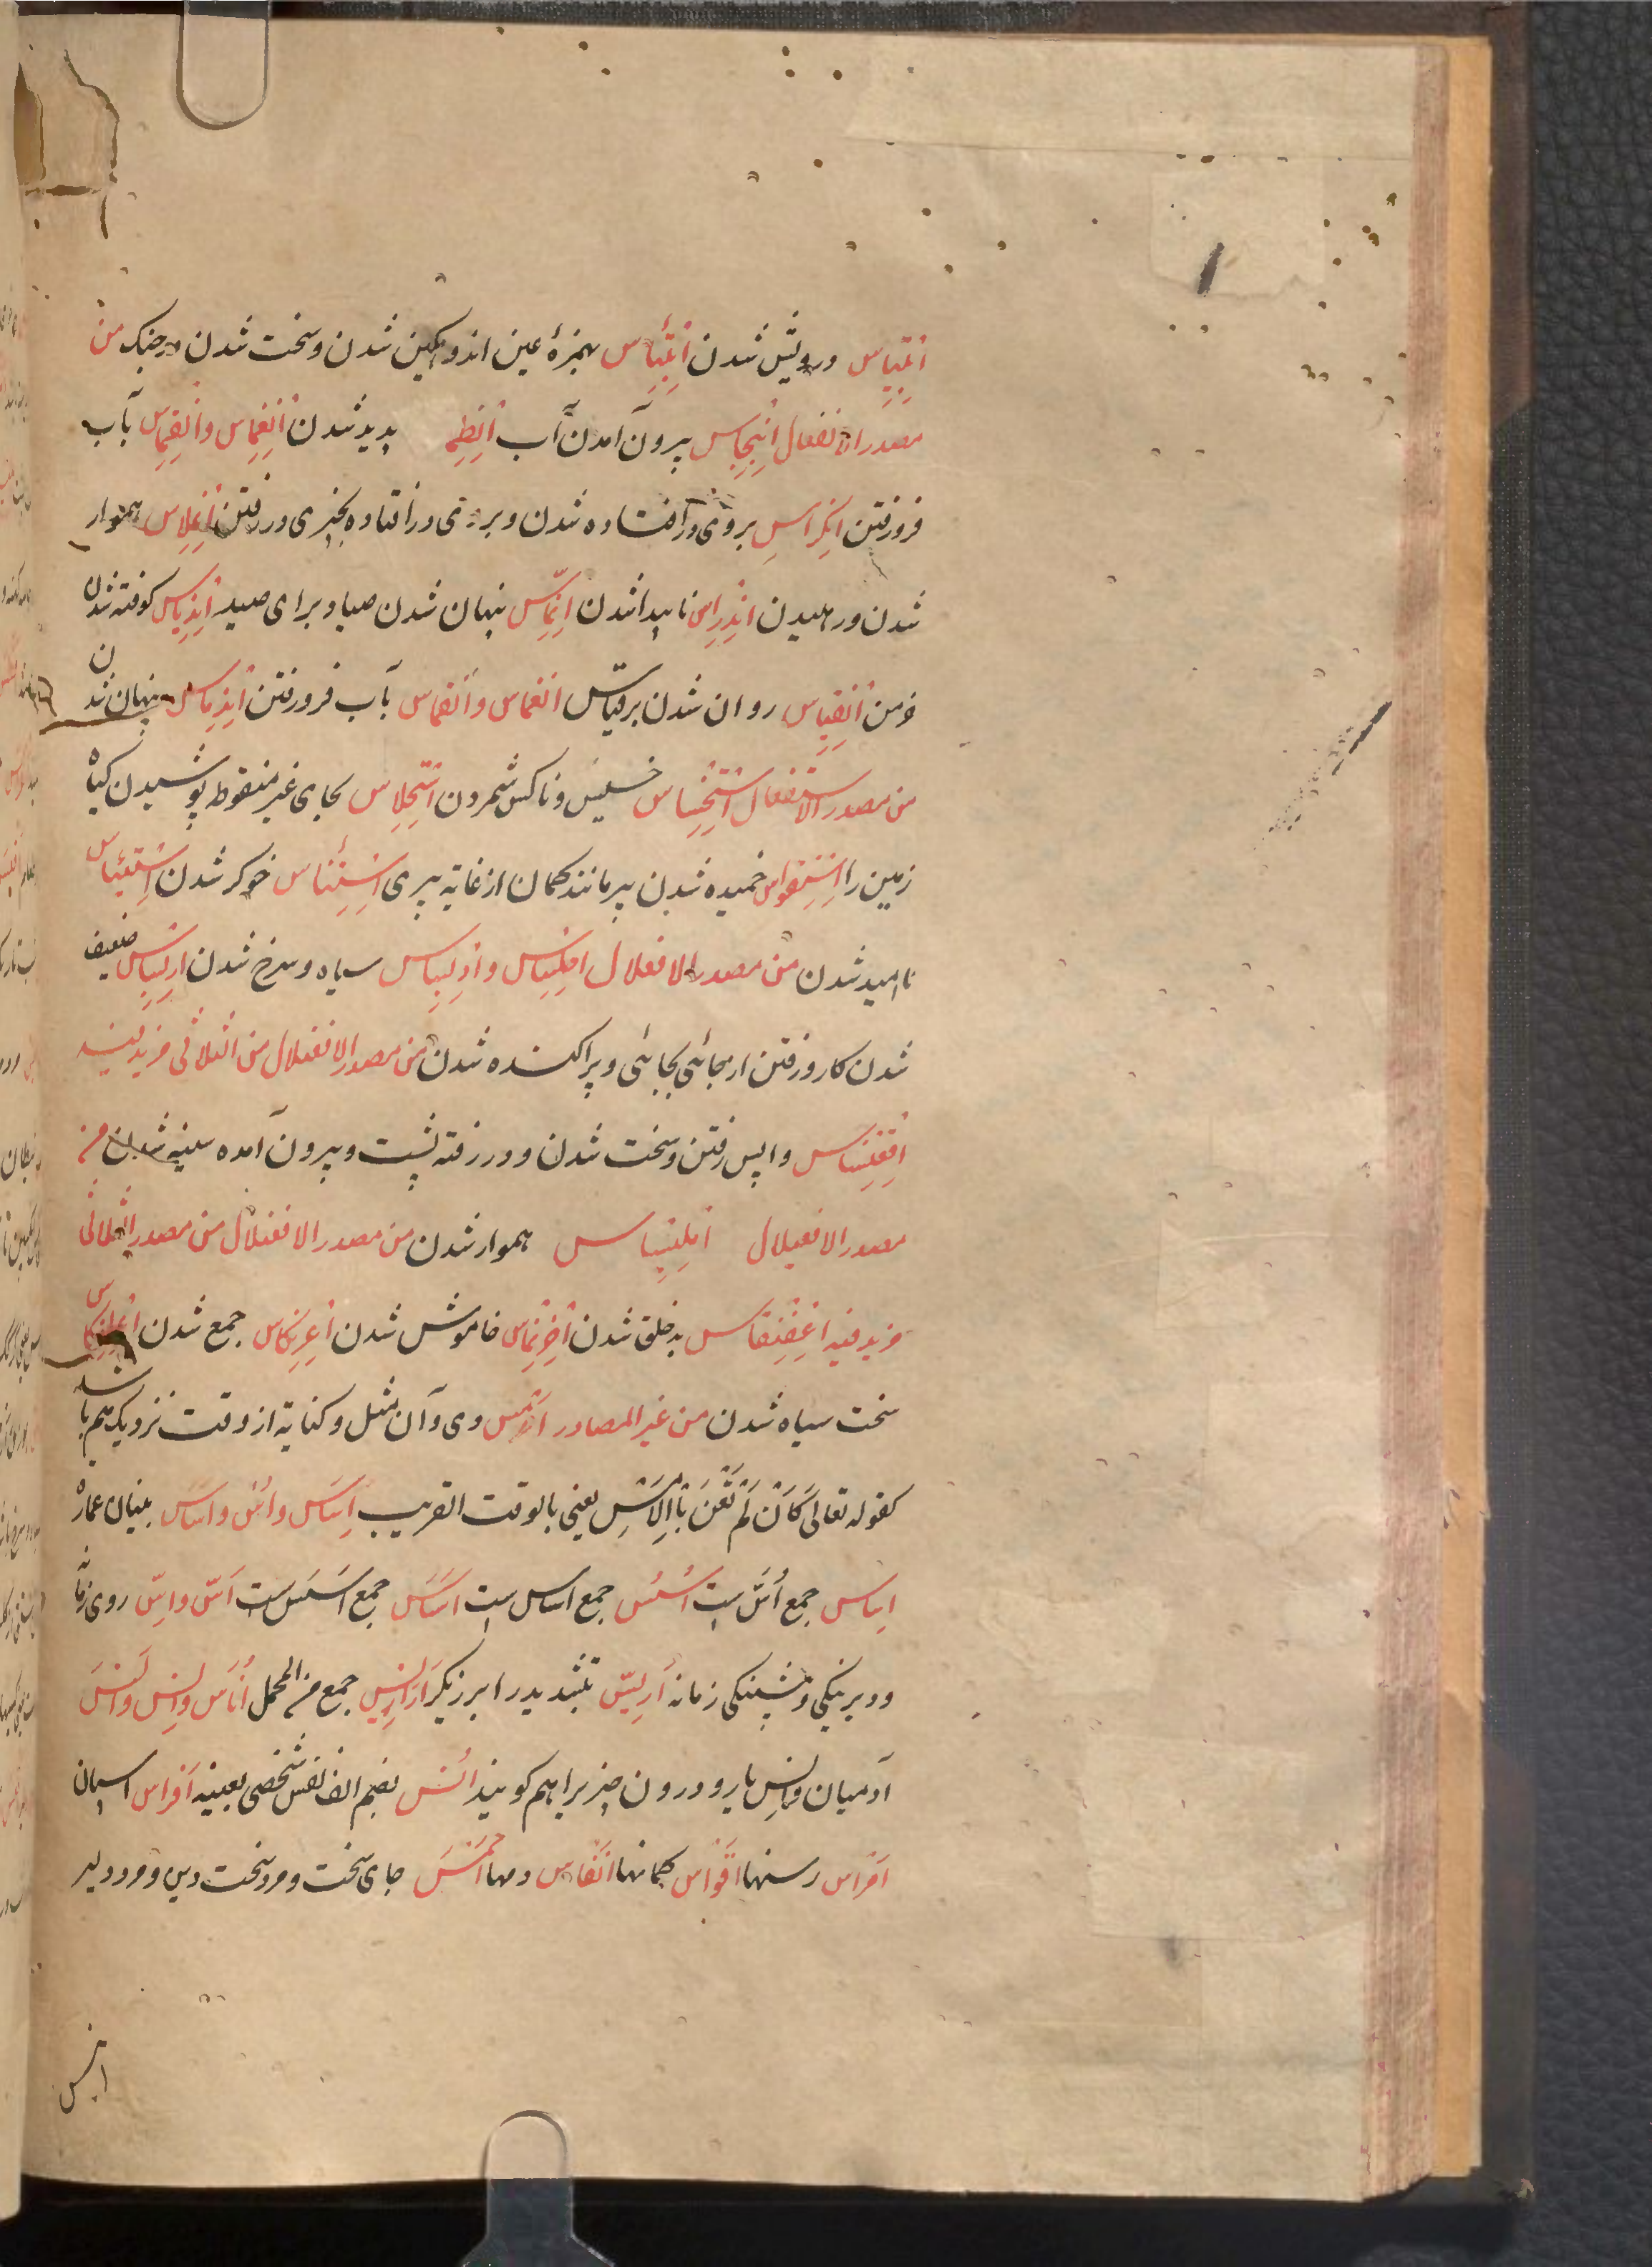 درویش شدن اِبْتِئاس بهمزهٔ عین اندوهگین شدن و سخت شدن در جنگ من
مصدر الانفعال اِنْبِجاس بیرون آمدن آب پدید شدن اِنْغِماس و اِنْقِماس بآب
فرو رفتن اِنکِراس بروی در افتاده شدن و بروی در افتاده بخیری در رفتن اِنْمِلاس هموار
شدن و رهیدن اِنْدِراس ناپیدا شدن اِنِّماس پنهان شدن صیاد برای صید کوفته شدن
خرمن روان شدن بر قیاس انغماس و انقماس بآب فرو رفتن پنهان شدن
من مصدر الاستفعال اِسْتِخْساس خسیس و ناکس شمردن اِسْتِحْلاس بحای غیر منقوطه پوشیدن گیاه
زمین را اِسْتِقْواس خمیده شدن پیر مانند کمان از غایة پیری اِسْتِئناس خوگر شدن
ناامید شدن من مصدر الافعلال و سیاه و سرخ شدن اِرْبِساس ضعیف
شدن کار و رفتن از جائی بجائی و پراکنده شدن من مصدر الافعنلال من الثلاثی مزید فیه
اِقْعِنْساس واپس رفتن و سخت شدن و در رفته پشت و بیرون آمده سینه شدن من
مصدر الافعیلال هموار شدن من مصدر الافعنلال من مصدر الثلاثی
مزید فیه اِعْفِنْقاس بدخلق شدن اِخْرِنْماس خاموش شدن اِعْرِنْکاس جمع شدن اِعْلِنْکاس
سخت سیاه شدن من غیر المصادر اَمْس دی و آن مثل و کنایة از وقت نزدیک هم باشد
کقوله تعالی کَاَنْ لَمْ تَغْنَ بِالْاَمْسِ یعنی بالوقت القریب اِساس و اُسّ و اَساس بنیان عمارة
اِساس جمع اُسّ است اُسُس جمع اساس است اَساس جمع اَسَس است اَسّ و اِسّ روی زمانه
و دیرینگی و پیشینگی زمانه اِرّیس بتشدید را برزیگر جمع من المجمل اُناس و اِنس و اَنَس
آدمیان و اِنس یار و درون چیز را هم گویند اُنس بضم الف نفس شخصی بعینه اَفراس اسپان
اَمْراس رسنها اَقْواس کمانها اَنْفاس دمها اَحْمَس جای سخت و مرد سخت دین و مرد دلیر